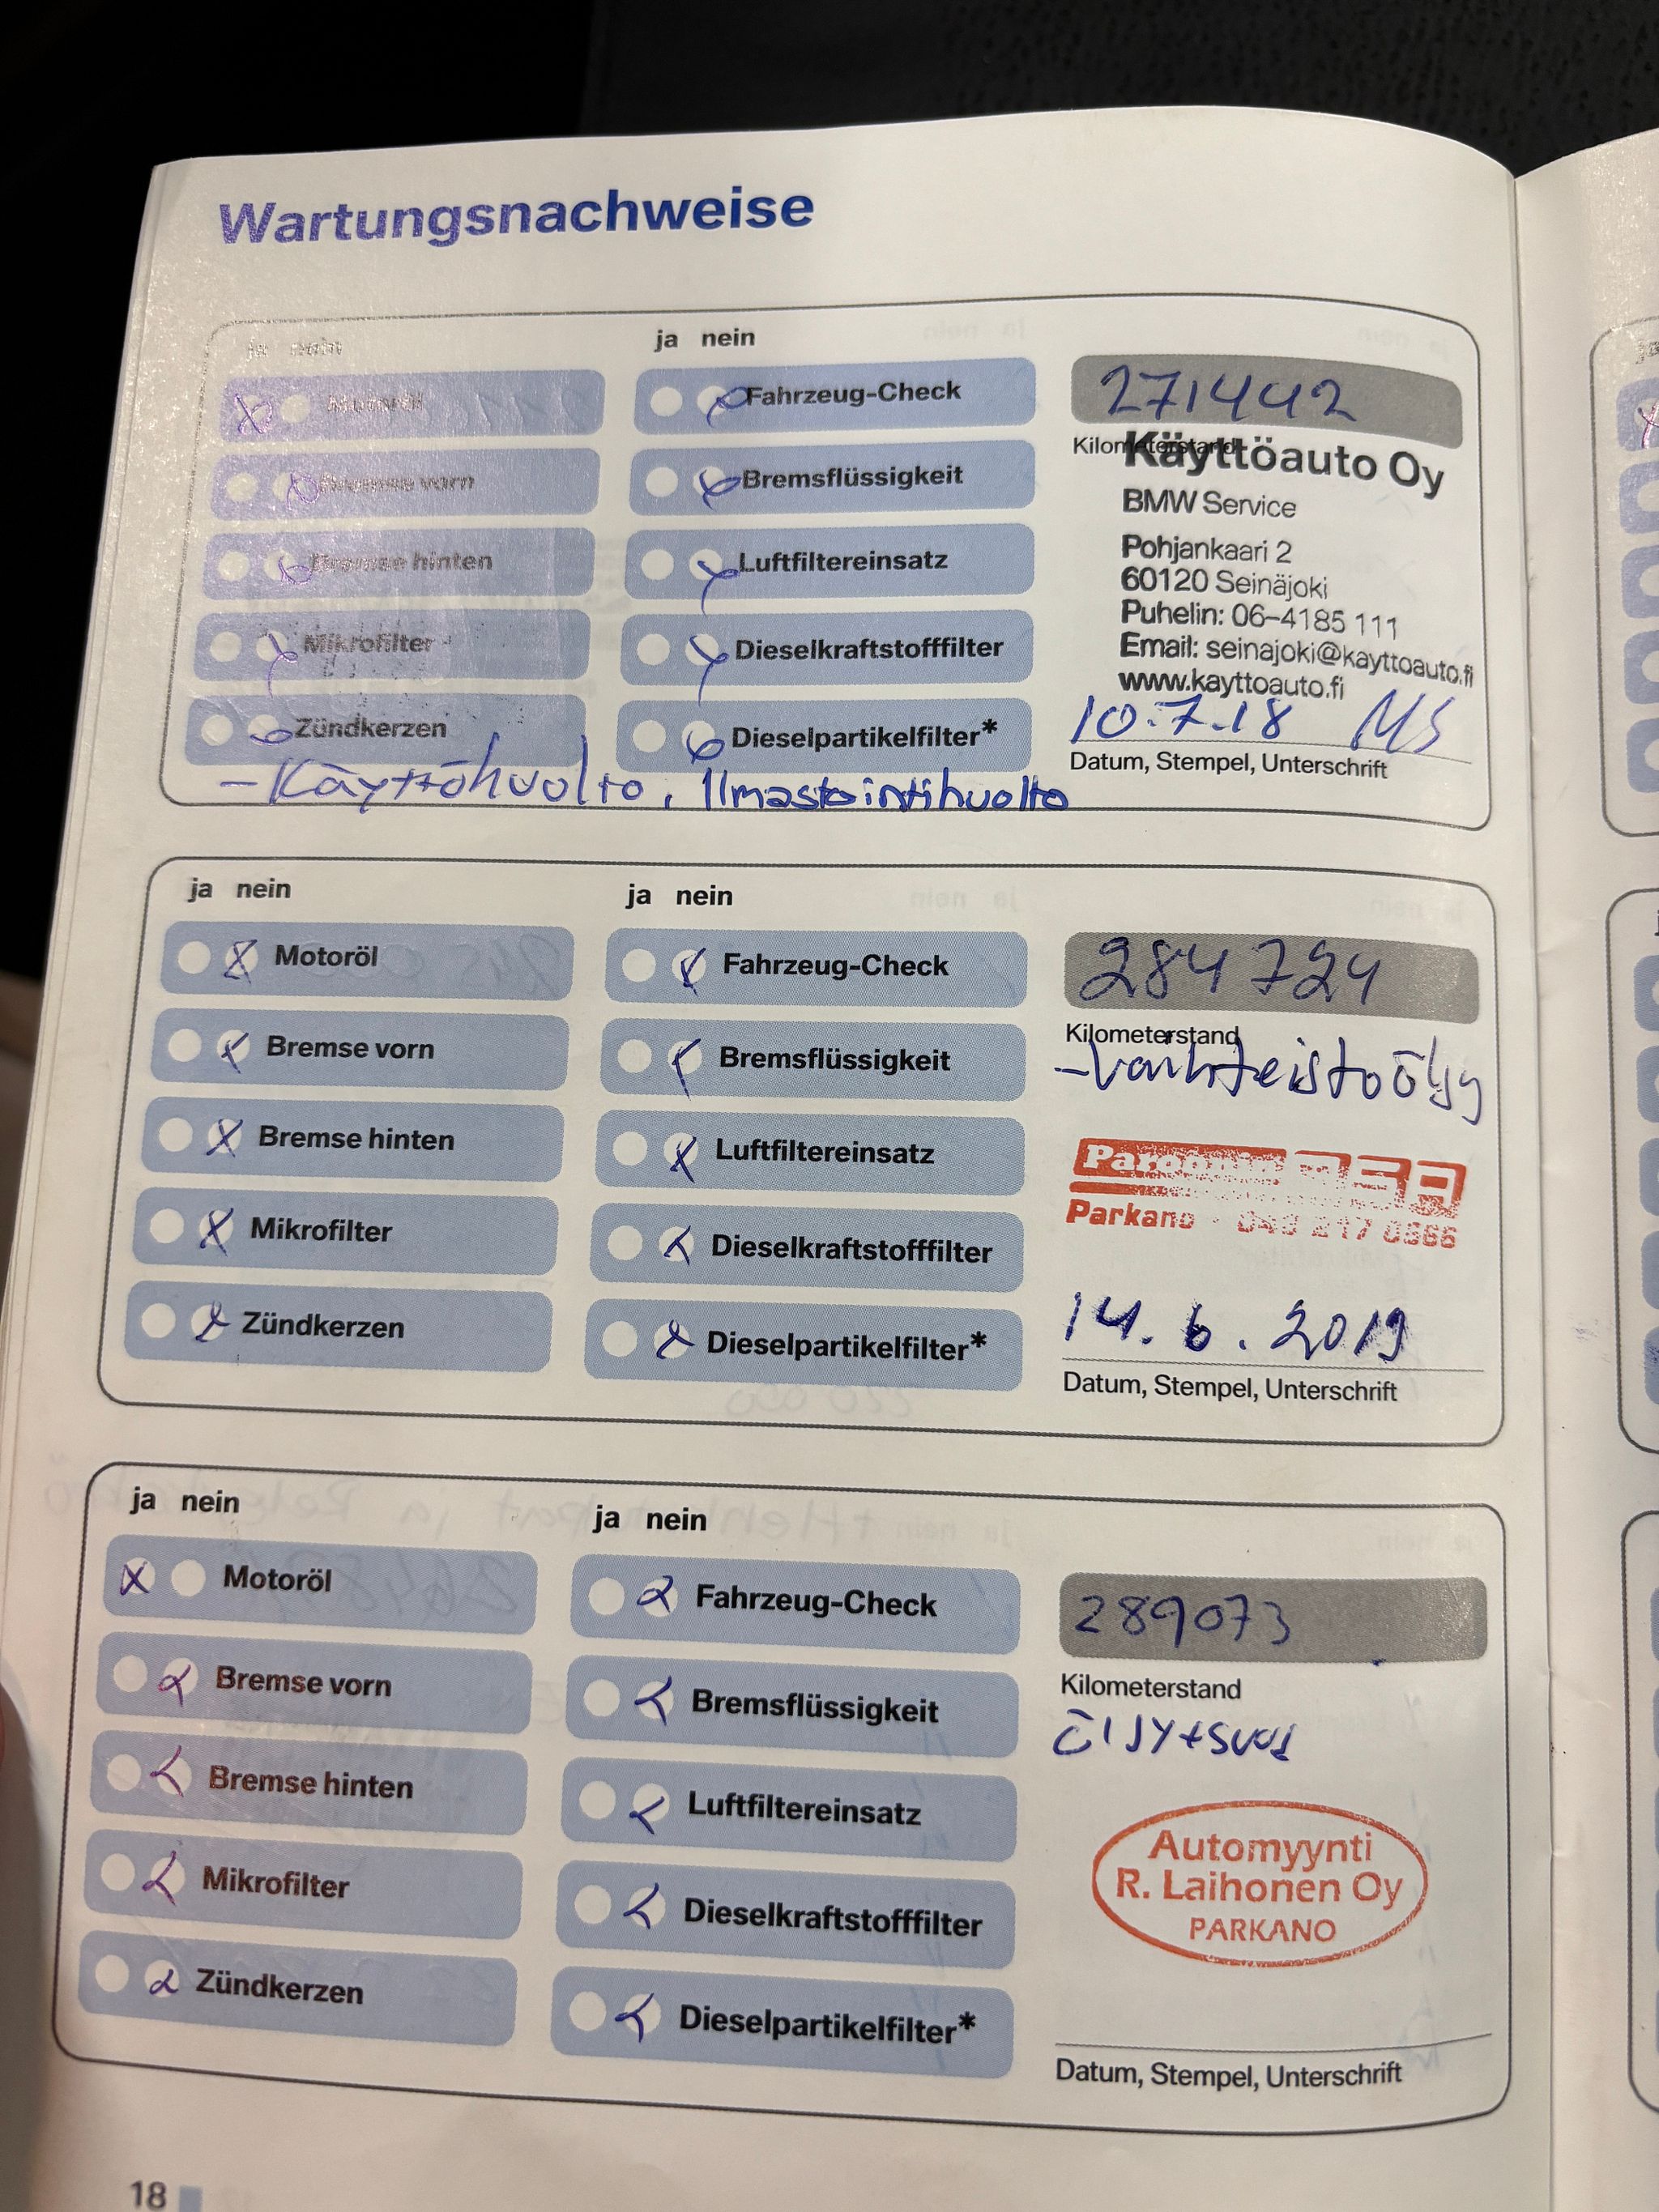 Wartungsnachweise
ja nein
Motoröl
Bremse vorn
Bremse hinten
Mikrofilter
Zündkerzen
ja nein
Fahrzeug-Check
Bremsflüssigkeit
Luftfiltereinsatz
Dieselkraftstofffilter
Dieselpartikelfilter*
271442
Kilometerstand
Käyttöauto Oy
BMW Service
Pohjankaari 2
60120 Seinäjoki
Puhelin: 06-4185 111
Email: seinajoki@kayttoauto.fi
www.kayttoauto.fi
10.7.18 MS
Datum, Stempel, Unterschrift
- Käyttöhuolto, Ilmastointihuolto
ja nein
Motoröl
Bremse vorn
Bremse hinten
Mikrofilter
Zündkerzen
ja nein
Fahrzeug-Check
Bremsflüssigkeit
Luftfiltereinsatz
Dieselkraftstofffilter
Dieselpartikelfilter*
284724
Kilometerstand
- Vaihteistoöljy
Parkano
14.6.2019
Datum, Stempel, Unterschrift
ja nein
Motoröl
Bremse vorn
Bremse hinten
Mikrofilter
Zündkerzen
ja nein
Fahrzeug-Check
Bremsflüssigkeit
Luftfiltereinsatz
Dieselkraftstofffilter
Dieselpartikelfilter*
289073
Kilometerstand
Automyynti
R. Laihonen Oy
PARKANO
Datum, Stempel, Unterschrift
18